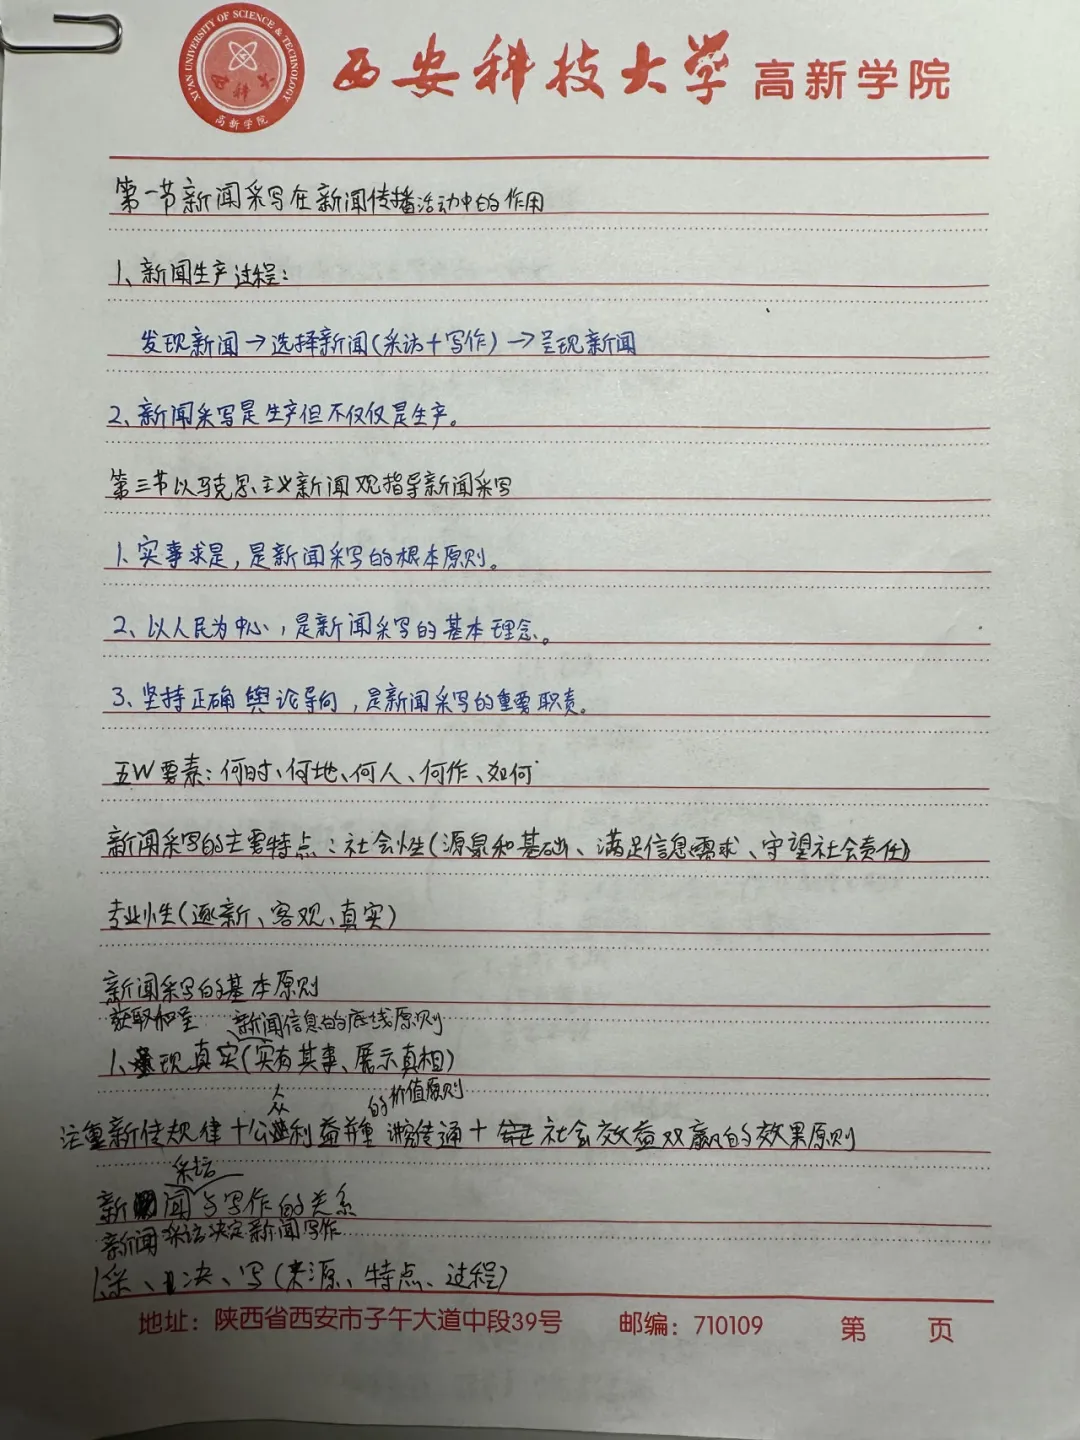 XI'AN UNIVERSITY OF SCIENCE & TECHNOLOGY
高新学院
西安科技大学 高新学院
第一节新闻采写在新闻传播活动中的作用
1、新闻生产过程:
发现新闻→选择新闻(采访+写作)→呈现新闻
2、新闻采写是生产但不仅仅是生产。
第三节以马克思主义新闻观指导新闻采写
1、实事求是,是新闻采写的根本原则。
2、以人民为中心,是新闻采写的基本理念。
3、坚持正确舆论导向,是新闻采写的重要职责。
五W要素:何时、何地、何人、何作、如何
新闻采写的主要特点:社会性(源泉和基础、满足信息需求、守望社会责任)
专业性(逐新、客观、真实)
新闻采写的基本原则
获取和呈 新闻信息的底线原则
1、现真实(实有其事、展示真相)
众 的价值原则
注重新传规律+公利益并重 讲究传通+社会效益双赢的效果原则
采访
新闻与写作的关系
新闻采访决定新闻写作
1.采、决、写(来源、特点、过程)
地址:陕西省西安市子午大道中段39号 邮编:710109 第 页